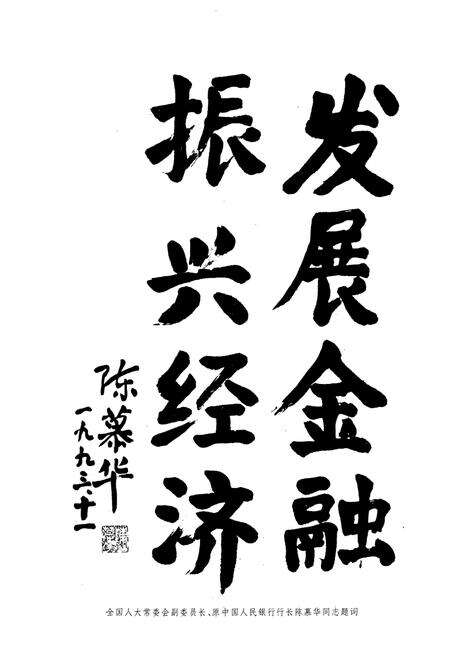 发展金融
振兴经济
陈慕华
一九九三·十一
全国人大常委会副委员长、原中国人民银行行长陈慕华同志题词